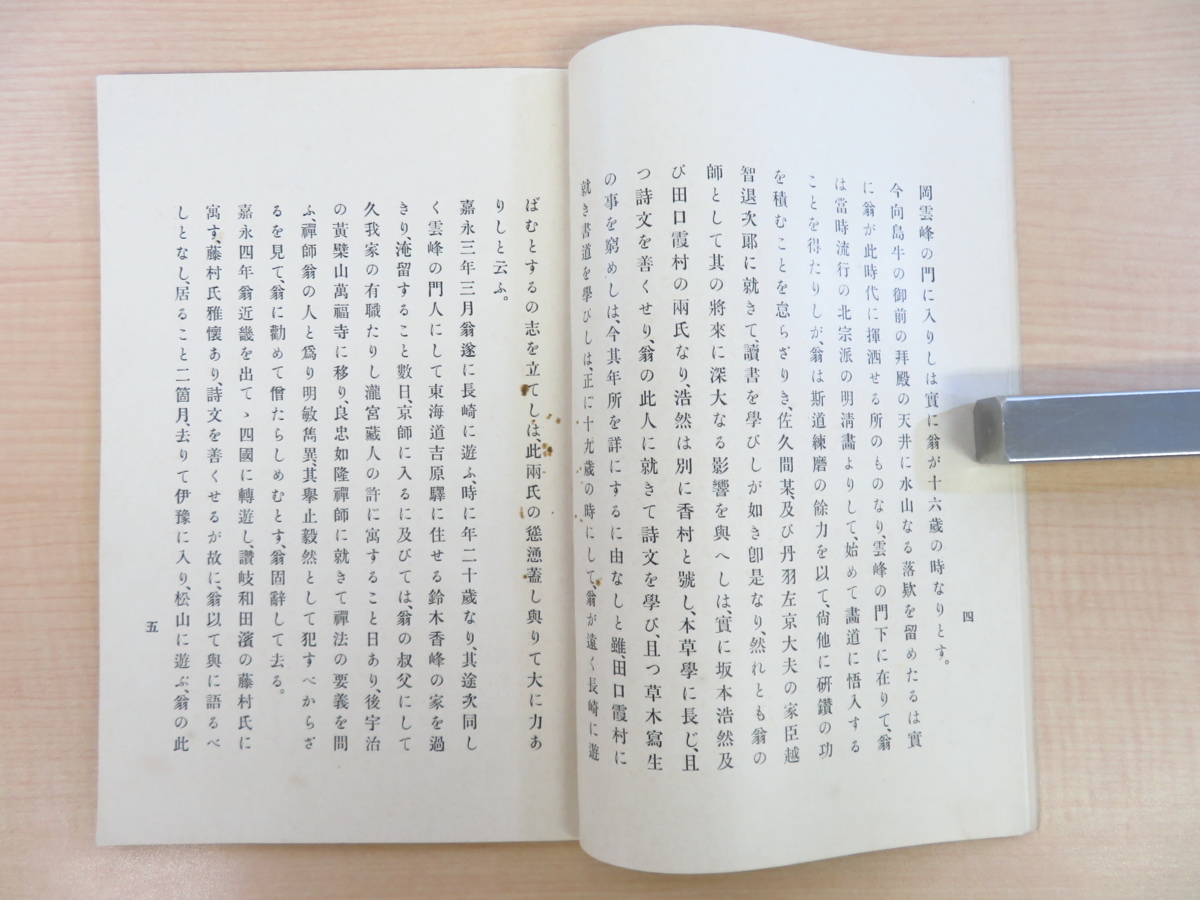 岡雲峰の門に入りしは實に翁が十六歲の時なりとす。
今向島牛の御前の拜殿の天井に水山なる落欵を留めたるは實
に翁が此時代に揮洒せる所のものなり、雲峰の門下に在りて、翁
は當時流行の北宗派の明淸畵よりして、始めて畵道に悟入する
ことを得たりしが、翁は斯道練磨の餘力を以て、尙他に硏鑽の功
を積むことを怠らざりき、佐久間某、及び丹羽左京大夫の家臣越
智退次郞に就きて、讀書を學びしが如き卽是なり、然れとも翁の
師として其の將來に深大なる影響を與へしは、實に坂本浩然及
び田口霞村の兩氏なり、浩然は別に香村と號し、本草學に長じ、且
つ詩文を善くせり、翁の此人に就きて詩文を學び、且つ草木寫生
の事を窮めしは、今其年所を詳にするに由なしと雖、田口霞村に
就き書道を學びしは、正に十九歲の時にして、翁が遠く長崎に遊
四
ばむとするの志を立てしは、此兩氏の慫慂蓋し與りて大に力あ
りしと云ふ。
嘉永三年三月翁遂に長崎に遊ふ、時に年二十歲なり、其途次同し
く雲峰の門人にして東海道吉原驛に住せる鈴木香峰の家を過
きり、淹留すること數日、京師に入るに及びては、翁の叔父にして
久我家の有職たりし瀧宮藏人の許に寓すること日あり、後宇治
の黃檗山萬福寺に移り、良忠如隆禪師に就きて禪法の要義を問
ふ、禪師翁の人と爲り明敏雋異、其擧止毅然として犯すべからざ
るを見て、翁に勸めて僧たらしめむとす、翁固辭して去る。
嘉永四年翁近畿を出てゝ四國に轉遊し、讚岐和田濱の藤村氏に
寓す、藤村氏雅懷あり、詩文を善くせるが故に、翁以て與に語るべ
しとなし、居ること二箇月、去りて伊豫に入り、松山に遊ぶ、翁の此
五